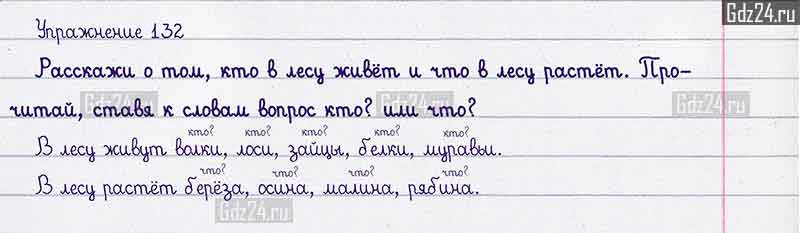 Gdz24.ru
Упражнение 132
Расскажи о том, кто в лесу живёт и что в лесу растёт. Про-
Gdz24.ru Gdz24.ru
читай, ставя к словам вопрос кто? или что?
кто? кто? кто? кто? кто?
В лесу живут волки, лоси, зайцы, белки, муравьи.
что? что? что? что?
В лесу растёт берёза, осина, малина, рябина.
Gdz24.ru